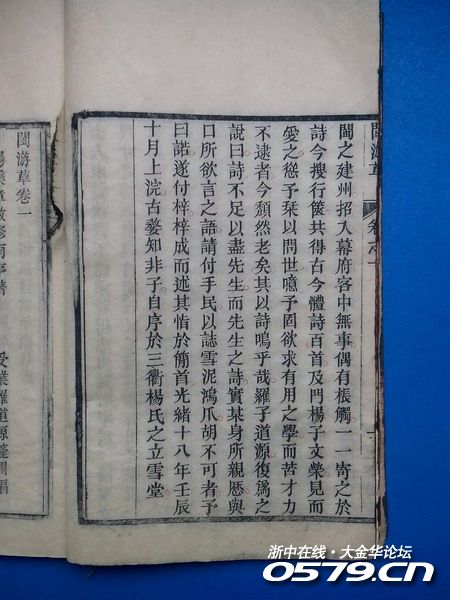 閩游草
閩之建州招入幕府客中無事偶有棖觸一一寄之於
詩今搜行篋共得古今體詩百首及門楊子文榮見而
愛之慫予栞以問世噫予固欲求有用之學而苦才力
不逮者今頹然老矣其以詩鳴乎哉羅子道源復為之
說曰詩不足以盡先生而先生之詩實某身所親歷與
口所欲言之語請付手民以誌雪泥鴻爪胡不可者予
曰諾遂付梓梓成而述其恉於簡首光緒十八年壬辰
十月上浣古婺知非子自序於三衢楊氏之立雪堂
閩游草卷一
受業羅道源
浙中在线·大金华论坛
0579.cn